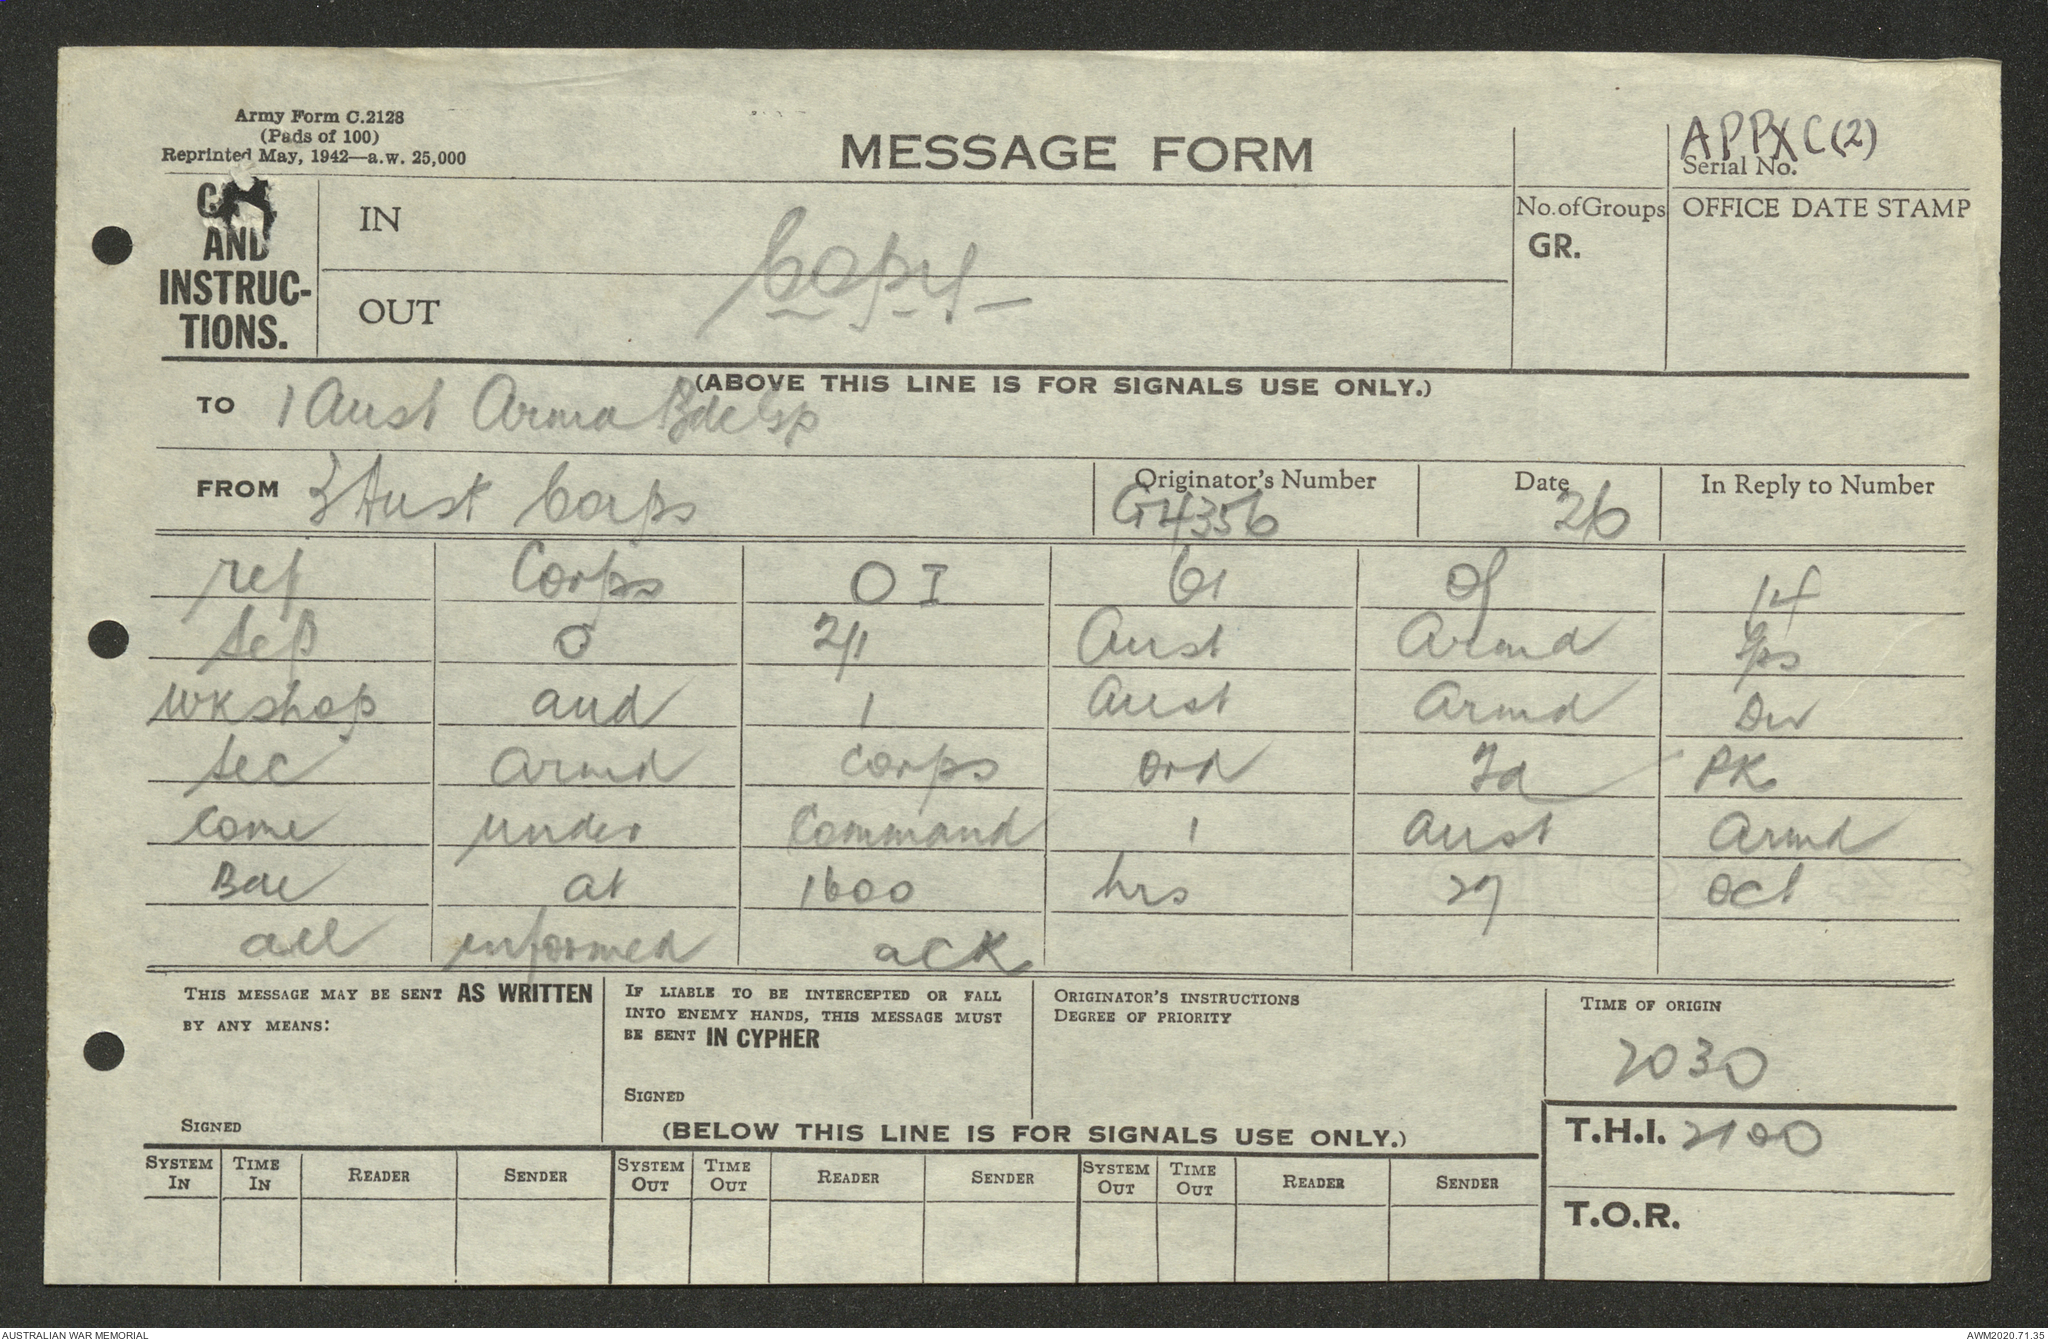 Army Form C.2128
(Pads of 100)
Reprinted May, 1942—a.w. 25,000
MESSAGE FORM
APPX C(2)
Serial No.
AND
INSTRUC-
TIONS.
IN
OUT
Copy
No. of Groups
GR.
OFFICE DATE STAMP
(ABOVE THIS LINE IS FOR SIGNALS USE ONLY.)
TO 1 Aust Armd Bde Gp
FROM 3 Aust Corps
Originator's Number
G4356
Date
26
In Reply to Number
ref Corps O I 61 of 14
Sep O 2/1 Aust Armd Gps
wkshop and 1 Aust Armd Div
Sec Armd Corps Ord Fd PK
Come under Command 1 Aust Armd
Bde at 1600 hrs 27 Oct
all informed ack
THIS MESSAGE MAY BE SENT AS WRITTEN
BY ANY MEANS:
SIGNED
IF LIABLE TO BE INTERCEPTED OR FALL
INTO ENEMY HANDS, THIS MESSAGE MUST
BE SENT IN CYPHER
SIGNED
ORIGINATOR'S INSTRUCTIONS
DEGREE OF PRIORITY
TIME OF ORIGIN
2030
(BELOW THIS LINE IS FOR SIGNALS USE ONLY.)
T.H.I. 2100
T.O.R.
SYSTEM IN TIME IN READER SENDER SYSTEM OUT TIME OUT READER SENDER SYSTEM OUT TIME OUT READER SENDER
AUSTRALIAN WAR MEMORIAL
AWM2020.71.35